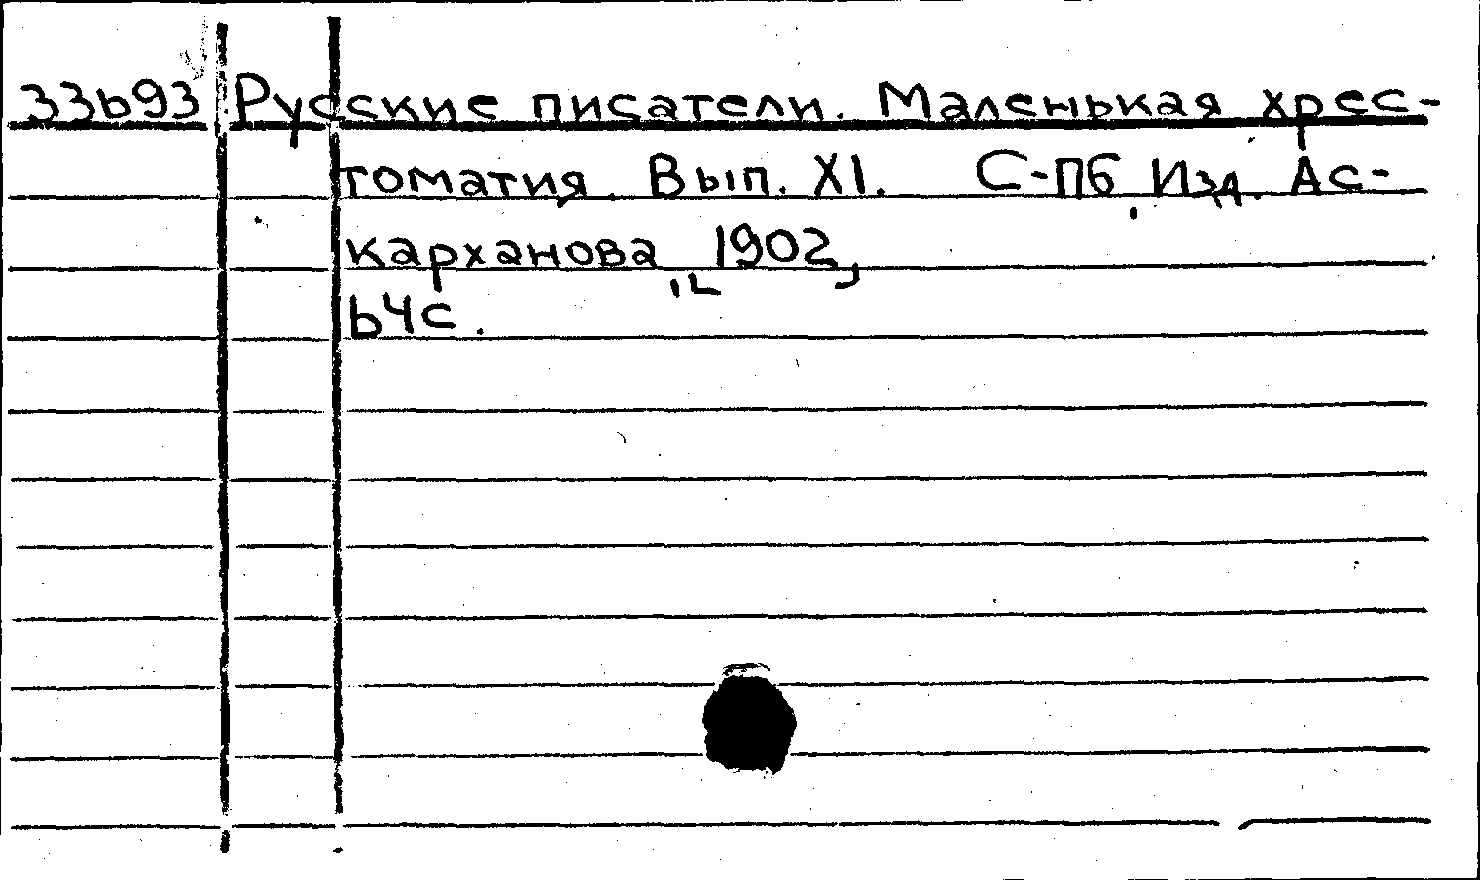 33693 Русские писатели. Маленькая хрес-
томатия. Вып. XI. С-Пб, Изд. Ас-
карханова, [1902],
64с.